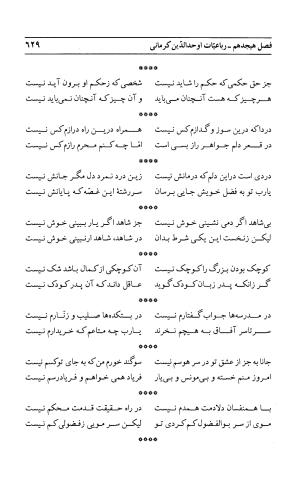 فصل هیجدهم ـ رباعیّات اوحدالدّین کرمانی ۶۲۹
****
جز حق حکمی که حکم را شاید نیست شخصی که زحکم او برون آید نیست
هرچیز که هست آنچنان می‌باید و آن چیز که آنچنان نمی‌باید نیست
****
دردا که درین سوز و گدازم کس نیست همراه درین راه درازم کس نیست
در قعر دلم جواهر راز بسی است امّا چه کنم محرم رازم کس نیست
****
دردی است دراین دلم که درمانش نیست زین درد نمرد دل مگر جانش نیست
یارب تو به فضل خویش جایی برسان سررشتهٔ این غصّه که پایانش نیست
****
بی‌شاهد اگر دمی نشینی خوش نیست جز شاهد اگر یار ببینی خوش نیست
لیکن زنخست این یکی شرط بدان در شاهد، شاهد ارنبینی خوش نیست
****
کوچک بودن بزرگ را کوچک نیست آن کوچکی از کمال باشد شک نیست
گر زانکه پدر زبان کودک گوید عاقل داند که آن پدر کودک نیست
****
در مدرسه‌ها جواب گفتارم نیست در بتکده‌ها صلیب و زنّارم نیست
سرتاسر آفاق به هیچم نخرند یارب چه متاعم که خریدارم نیست
****
جانا به جز از عشق تو در سر هوسم نیست سوگند خورم من که به جای توکسم نیست
امروز منم خسته و بی‌مونس و بی‌یار فریاد همی خواهم و فریادرسم نیست
****
با همنفسان دلادمت همدم نیست در راه حقیقت قدمت محکم نیست
موی از سر بوالفضول کم کردی تو لیکن سر مویی زفضولی کم نیست
****